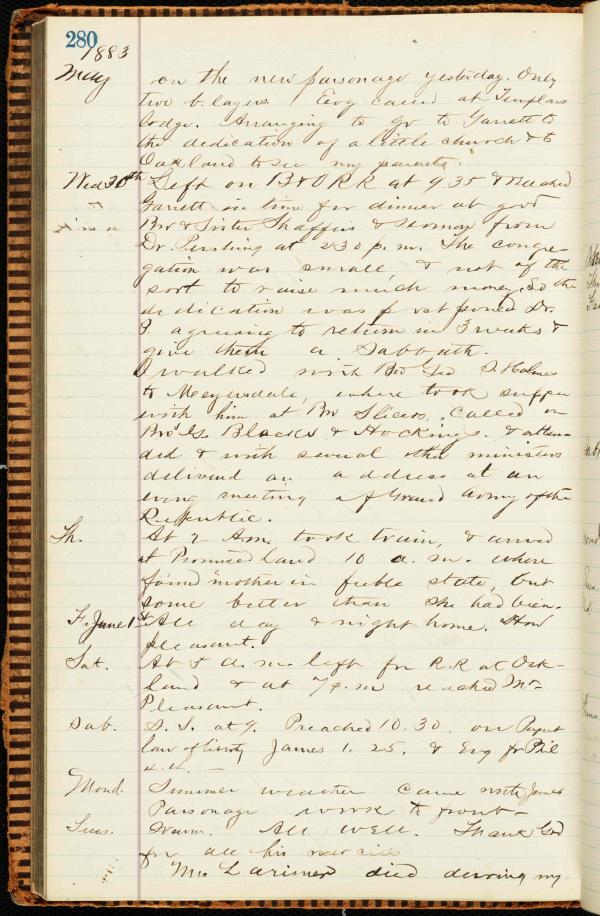 280
1883
May on the new parsonage yesterday. Only
two b. layers Evg called at Templars
lodge. Arranging to go to Garrett to
the dedication of a little church & to
Oakland to see my parents.
Wed 30th Left on B & O RR at 9.35 & reached
Garrett in time for dinner at good
Bro & Sister Shaffers & sermon from
Dr. Pershing at 2 30 p. m. The congre-
gation was small, & not of the
sort to raise much money, So the
dedication was postponed Dr.
P. agreeing to return in 3 weeks &
give them a Sabbath.
I walked with Bro Geo S. Holmes
to Meyersdale, where took supper
with him at Bro Slicers, called on
Bro's Blacks & Hockings. & atten-
ded & with several other ministers
delivered an address at an
eveng meeting of Grand Army of the
Republic.
Th. At 2 A.m. took train, & arrived
at Promised Land 10 a. m. where
found mother in feeble state, but
some better than she had been.
F. June 1st All day & night home. How
pleasant.
Sat. At 8 a. m. left for R.R at Oak-
land & at 7 p. m reached Mt
Pleasant.
Sab. S. S. at 9. Preached 10.30. on Perfect
law of liberty James 1. 25. & Evg fr Phil
4.4. —
Mond. Summer weather came with June
Parsonage work to front—
Tues. Warm. All well. Thank God
for all his mercies
Mrs Larimer died during my